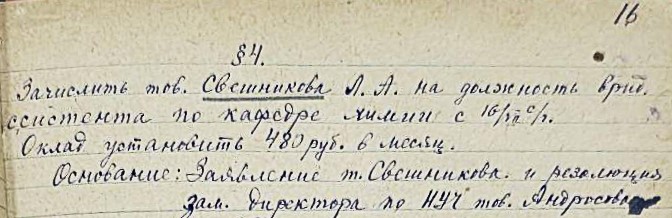 16
§4.
Зачислить тов. Свешникова Л. А. на должность врид.
ссистента по кафедре химии с 16/II с/г.
Оклад установить 480 руб. в месяц.
Основание: Заявление т. Свешникова и резолюция
зам. директора по НУЧ тов. Андросова